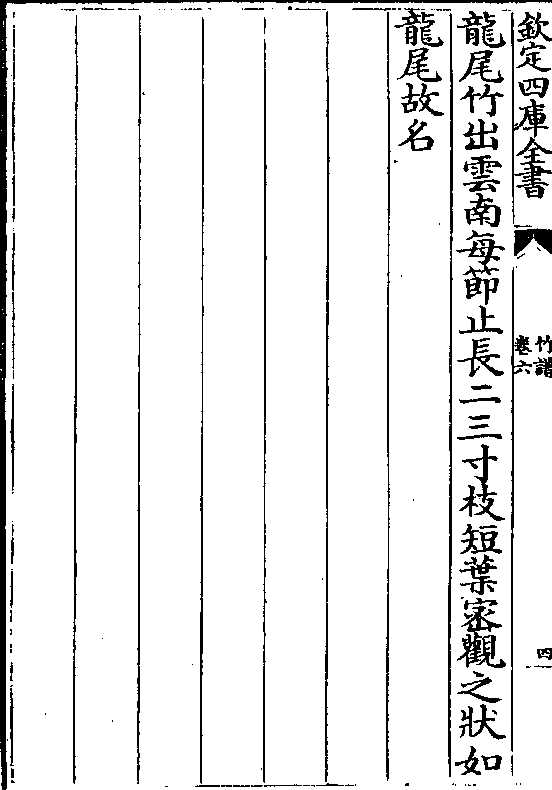 欽定四庫全書
竹譜
卷六
四
龍尾竹出雲南每節止長二三寸枝短葉密觀之狀如
龍尾故名